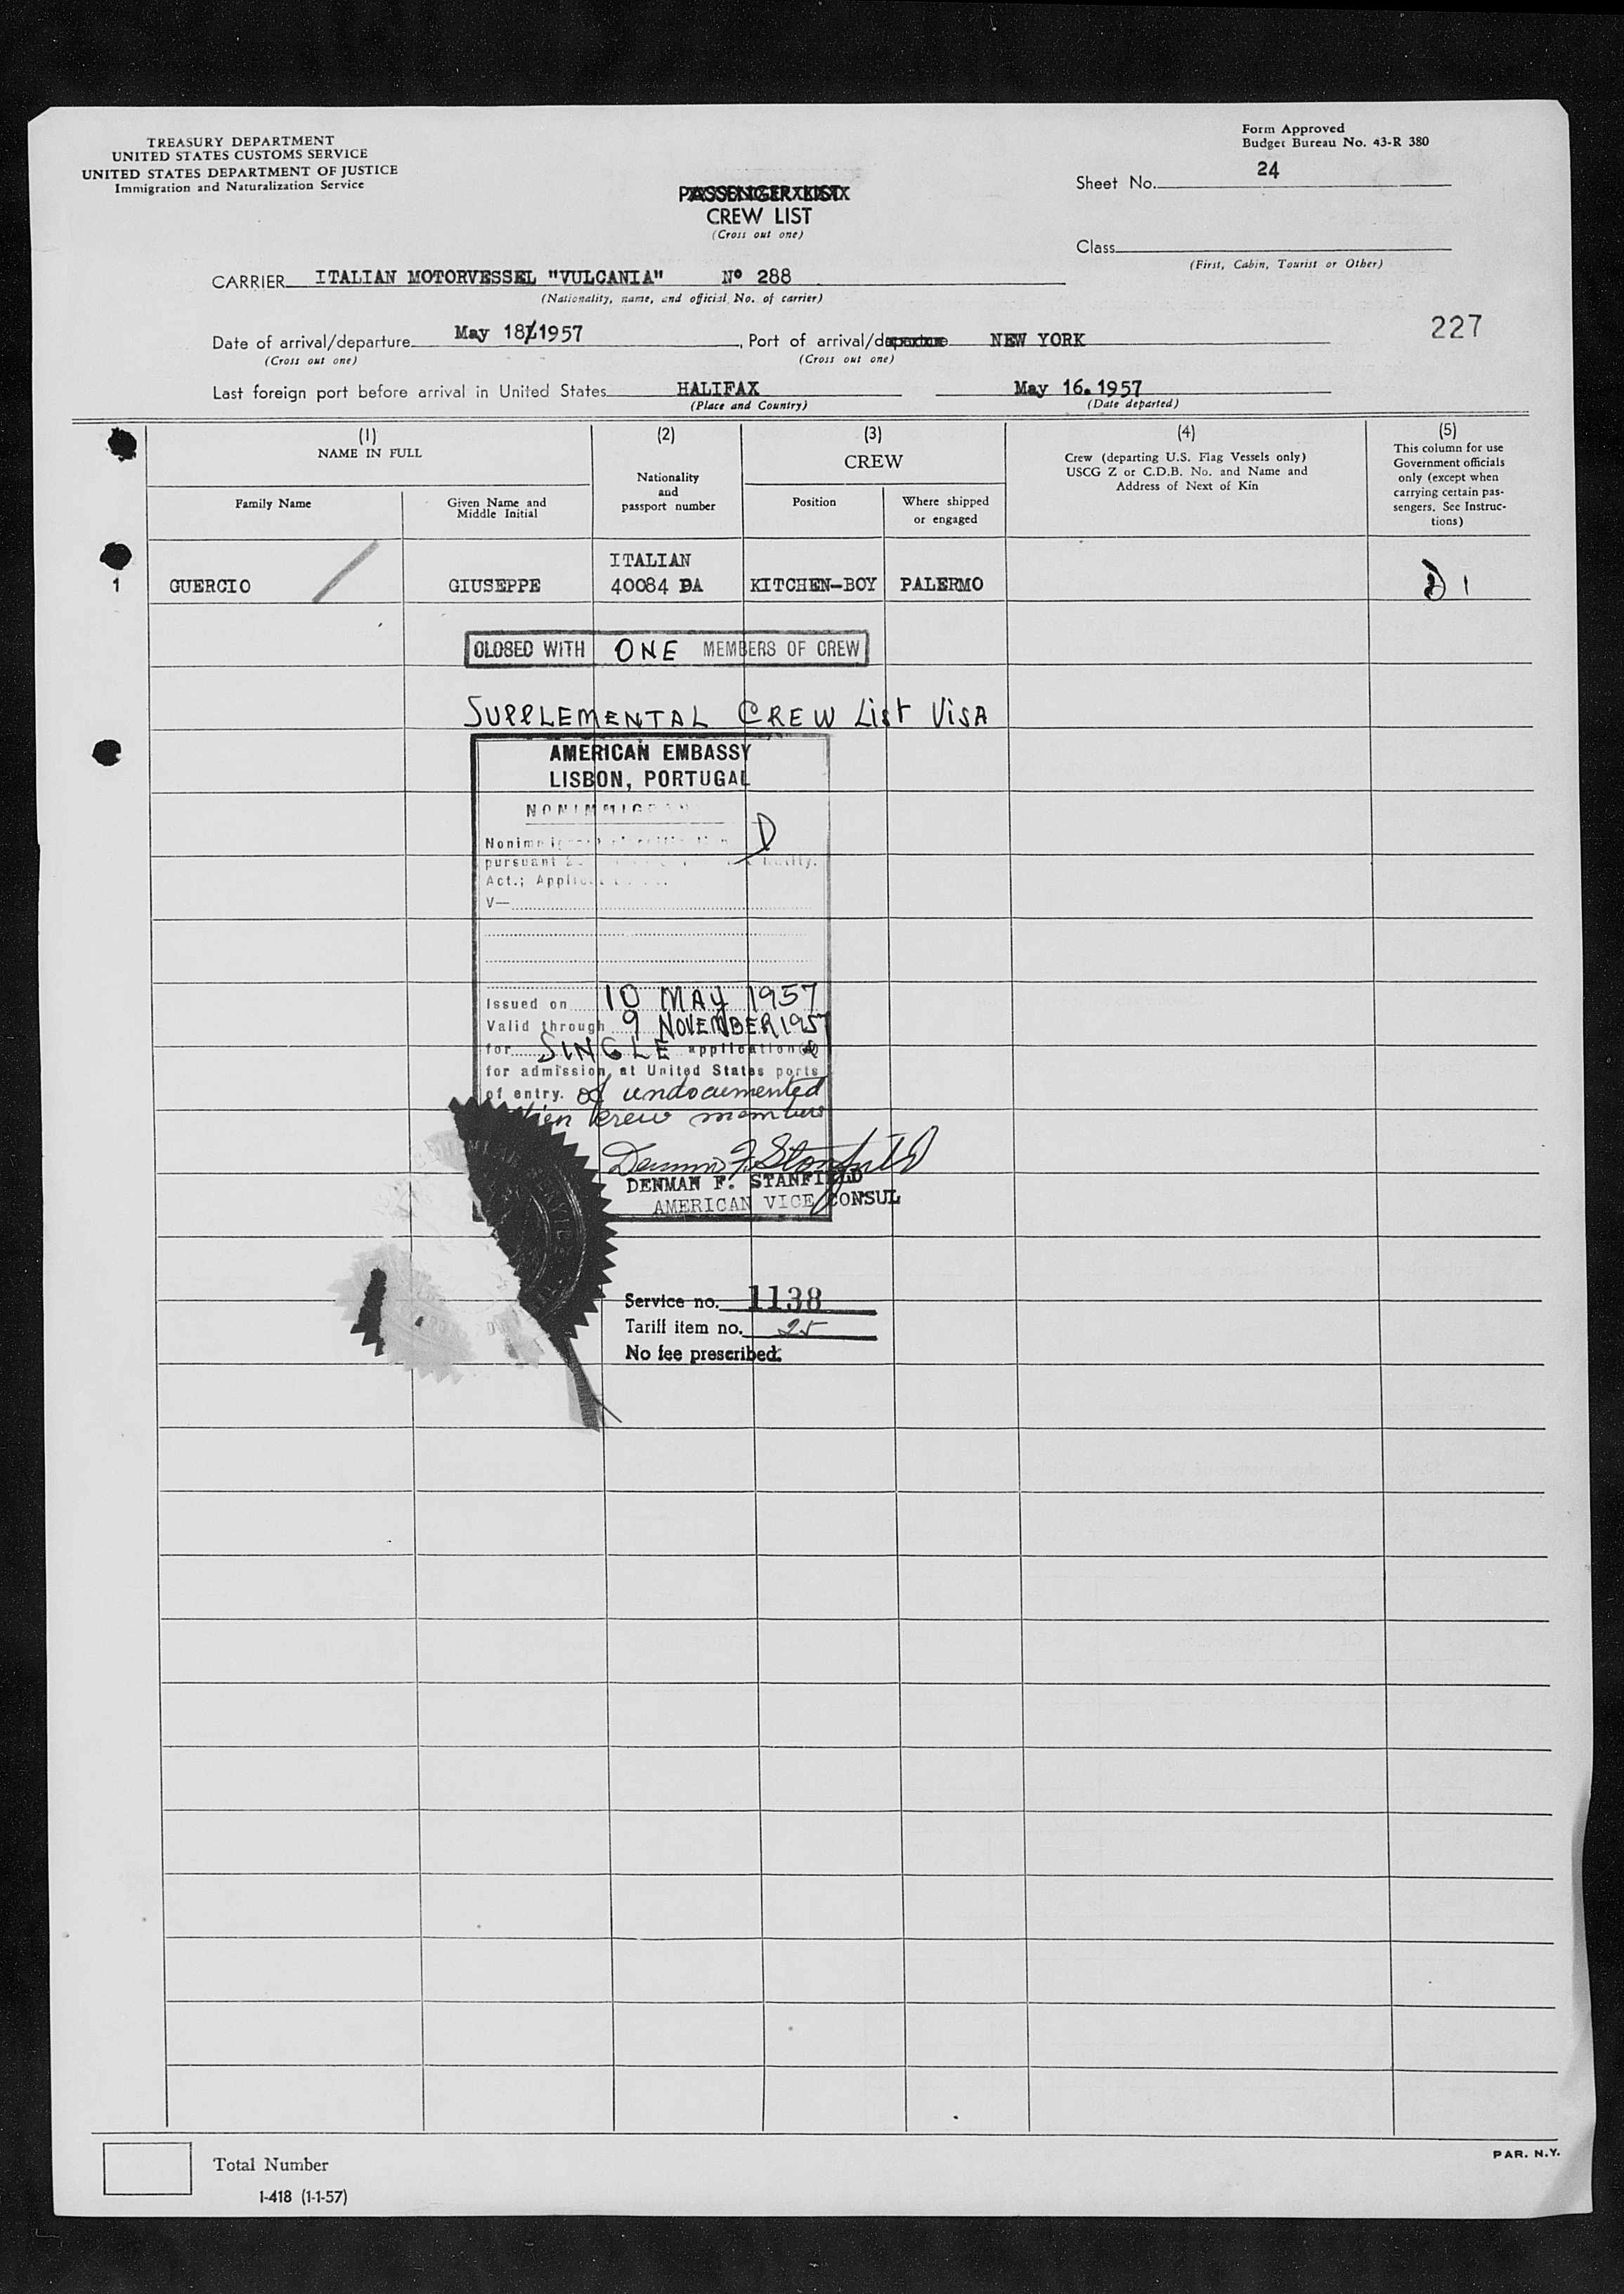 TREASURY DEPARTMENT
UNITED STATES CUSTOMS SERVICE
UNITED STATES DEPARTMENT OF JUSTICE
Immigration and Naturalization Service
Form Approved
Budget Bureau No. 43-R 380
Sheet No. 24
PASSENGER LIST
CREW LIST
(Cross out one)
Class
(First, Cabin, Tourist or Other)
CARRIER ITALIAN MOTORVESSEL "VULCANIA" Nº 288
(Nationality, name, and official No. of carrier)
227
Date of arrival/departure May 18 1957, Port of arrival/departure NEW YORK
(Cross out one) (Cross out one)
Last foreign port before arrival in United States HALIFAX May 16.1957
(Place and Country) (Date departed)
(1) (2) (3) (4) (5)
NAME IN FULL
Family Name
Given Name and
Middle Initial
Nationality
and
passport number
CREW
Position
Where shipped
or engaged
Crew (departing U.S. Flag Vessels only)
USCG Z or C.D.B. No. and Name and
Address of Next of Kin
This column for use
Government officials
only (except when
carrying certain pas-
sengers. See Instruc-
tions)
ITALIAN
1 GUERCIO GIUSEPPE 40084 PA KITCHEN-BOY PALERMO D 1
CLOSED WITH ONE MEMBERS OF CREW
SUPPLEMENTAL CREW LIST VISA
AMERICAN EMBASSY
LISBON, PORTUGAL
D
pursuant
Act.;
V—
Issued on 10 MAY 1957
Valid through 9 NOVEMBER 1957
for SINGLE application(s)
for admission at United States ports
of entry. of undocumented
alien crew members
Denman F. Stanfield
DENMAN F. STANFIELD
AMERICAN VICE CONSUL
Service no. 1138
Tariff item no. 25
No fee prescribed.
Total Number
I-418 (1-1-57)
PAR. N.Y.